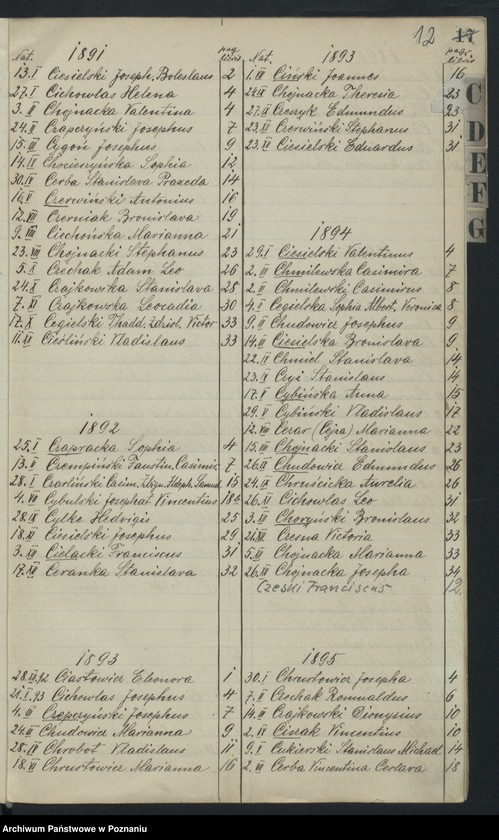 12 17
Nat. 1891 pag. libri
13.I Ciesielski Joseph. Boleslaus 2
27.I Cichowlas Helena 4
3.II Chojnacka Valentina 4
24.II Czapczyński Josephus 7
15.III Cygoń Josephus 9
14.IV Choiczyńska Sophia 12
30.IV Cerba Stanislava Praxeda 14
16.V Czerwiński Antonius 16
12.VII Czerniak Bronislava 19
9.VIII Ciechońska Marianna 21
23.VIII Chojnacki Stephanus 23
5.X Czechak Adam Leo 26
24.X Czajkowska Stanislava 28
7.XI Czajkowska Leocadia 30
17.X Cegielski Thadd. Zdzisl. Victor 33
11.XII Cieśliński Vladislaus 33
1892
25.I Czapracka Sophia 4
13.II Czempiński Faustin. Casimir. 7
28.I Czarliński Casim. Zbign. Adolph. Samuel 15
4.VII Cybulski Josephat Vincentius 18
28.IX Cylke Hedvigis 25
18.XI Ciesielski Josephus 29
3.XII Cielacki Franciscus 31
17.XII Ceranka Stanislava 32
1893
28.XII.92 Ciastowicz Eleonora 1
21.I.93 Cichowlas Josephus 4
4.III Czepczyński Josephus 7
24.III Chudowicz Marianna 9
28.IV Chrobot Vladislaus 11
18.VI Chrustowicz Marianna 16
Nat. 1893 pag. libri
1.VII Ciński Joannes 16
24.IX Chojnacka Theresia 23
27.IX Czeszyk Edmundus 23
23.XII Czerwiński Stephanus 31
23.XII Ciesielski Eduardus 31
C
D
E
F
G
1894
29.I Ciesielski Valentinus 4
2.III Chmilewska Casimira 7
2.III Chmilewski Casimirus 8
4.II Cegielska Sophia Albert. Veronica 8
9.II Chudowicz Josephus 9
14.III Ciesielska Bronislava 9
22.IV Chmiel Stanislava 14
23.IV Czyż Stanislaus 14
17.V Cybińska Anna 15
29.V Cybiński Vladislaus 17
12.VIII Cezar (Cejza) Marianna 22
15.VIII Chojnacki Stanislaus 23
26.IX Chudowicz Edmundus 26
24.IX Chruścicka Aurelia 26
26.XI Cichowlas Leo 31
3.XII Choryński Bronislaus 32
21.XII Czesna Victoria 33
5.XII Chojnacka Marianna 33
26.XII Chojnacka Josepha 34
Czeski Franciscus 12
1895
30.I Chrustowicz Josepha 4
7.II Czochak Romualdus 6
14.III Czajkowski Dionysius 10
2.II Cieżak Vincentius 10
9.V Cukierski Stanislaus Michael 14
2.VI Cerba Vincentina Ceslava 18
Archiwum Państwowe w Poznaniu
szukajwarchiwach.gov.pl